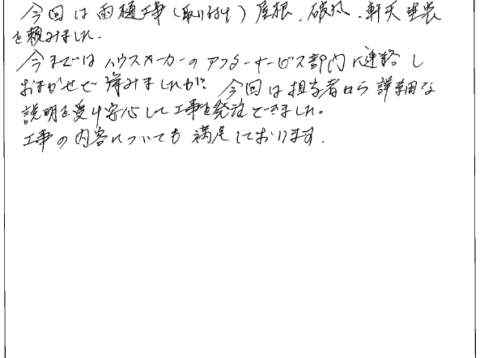 今回は雨樋工事(取り付け)屋根、破風、軒天塗装
を頼みました。
今まではハウスメーカーのアフターサービス部門に連絡し
おまかせで済みましたが、今回は担当者から詳細な
説明を受け安心して工事を発注できました。
工事の内容についても満足しております。